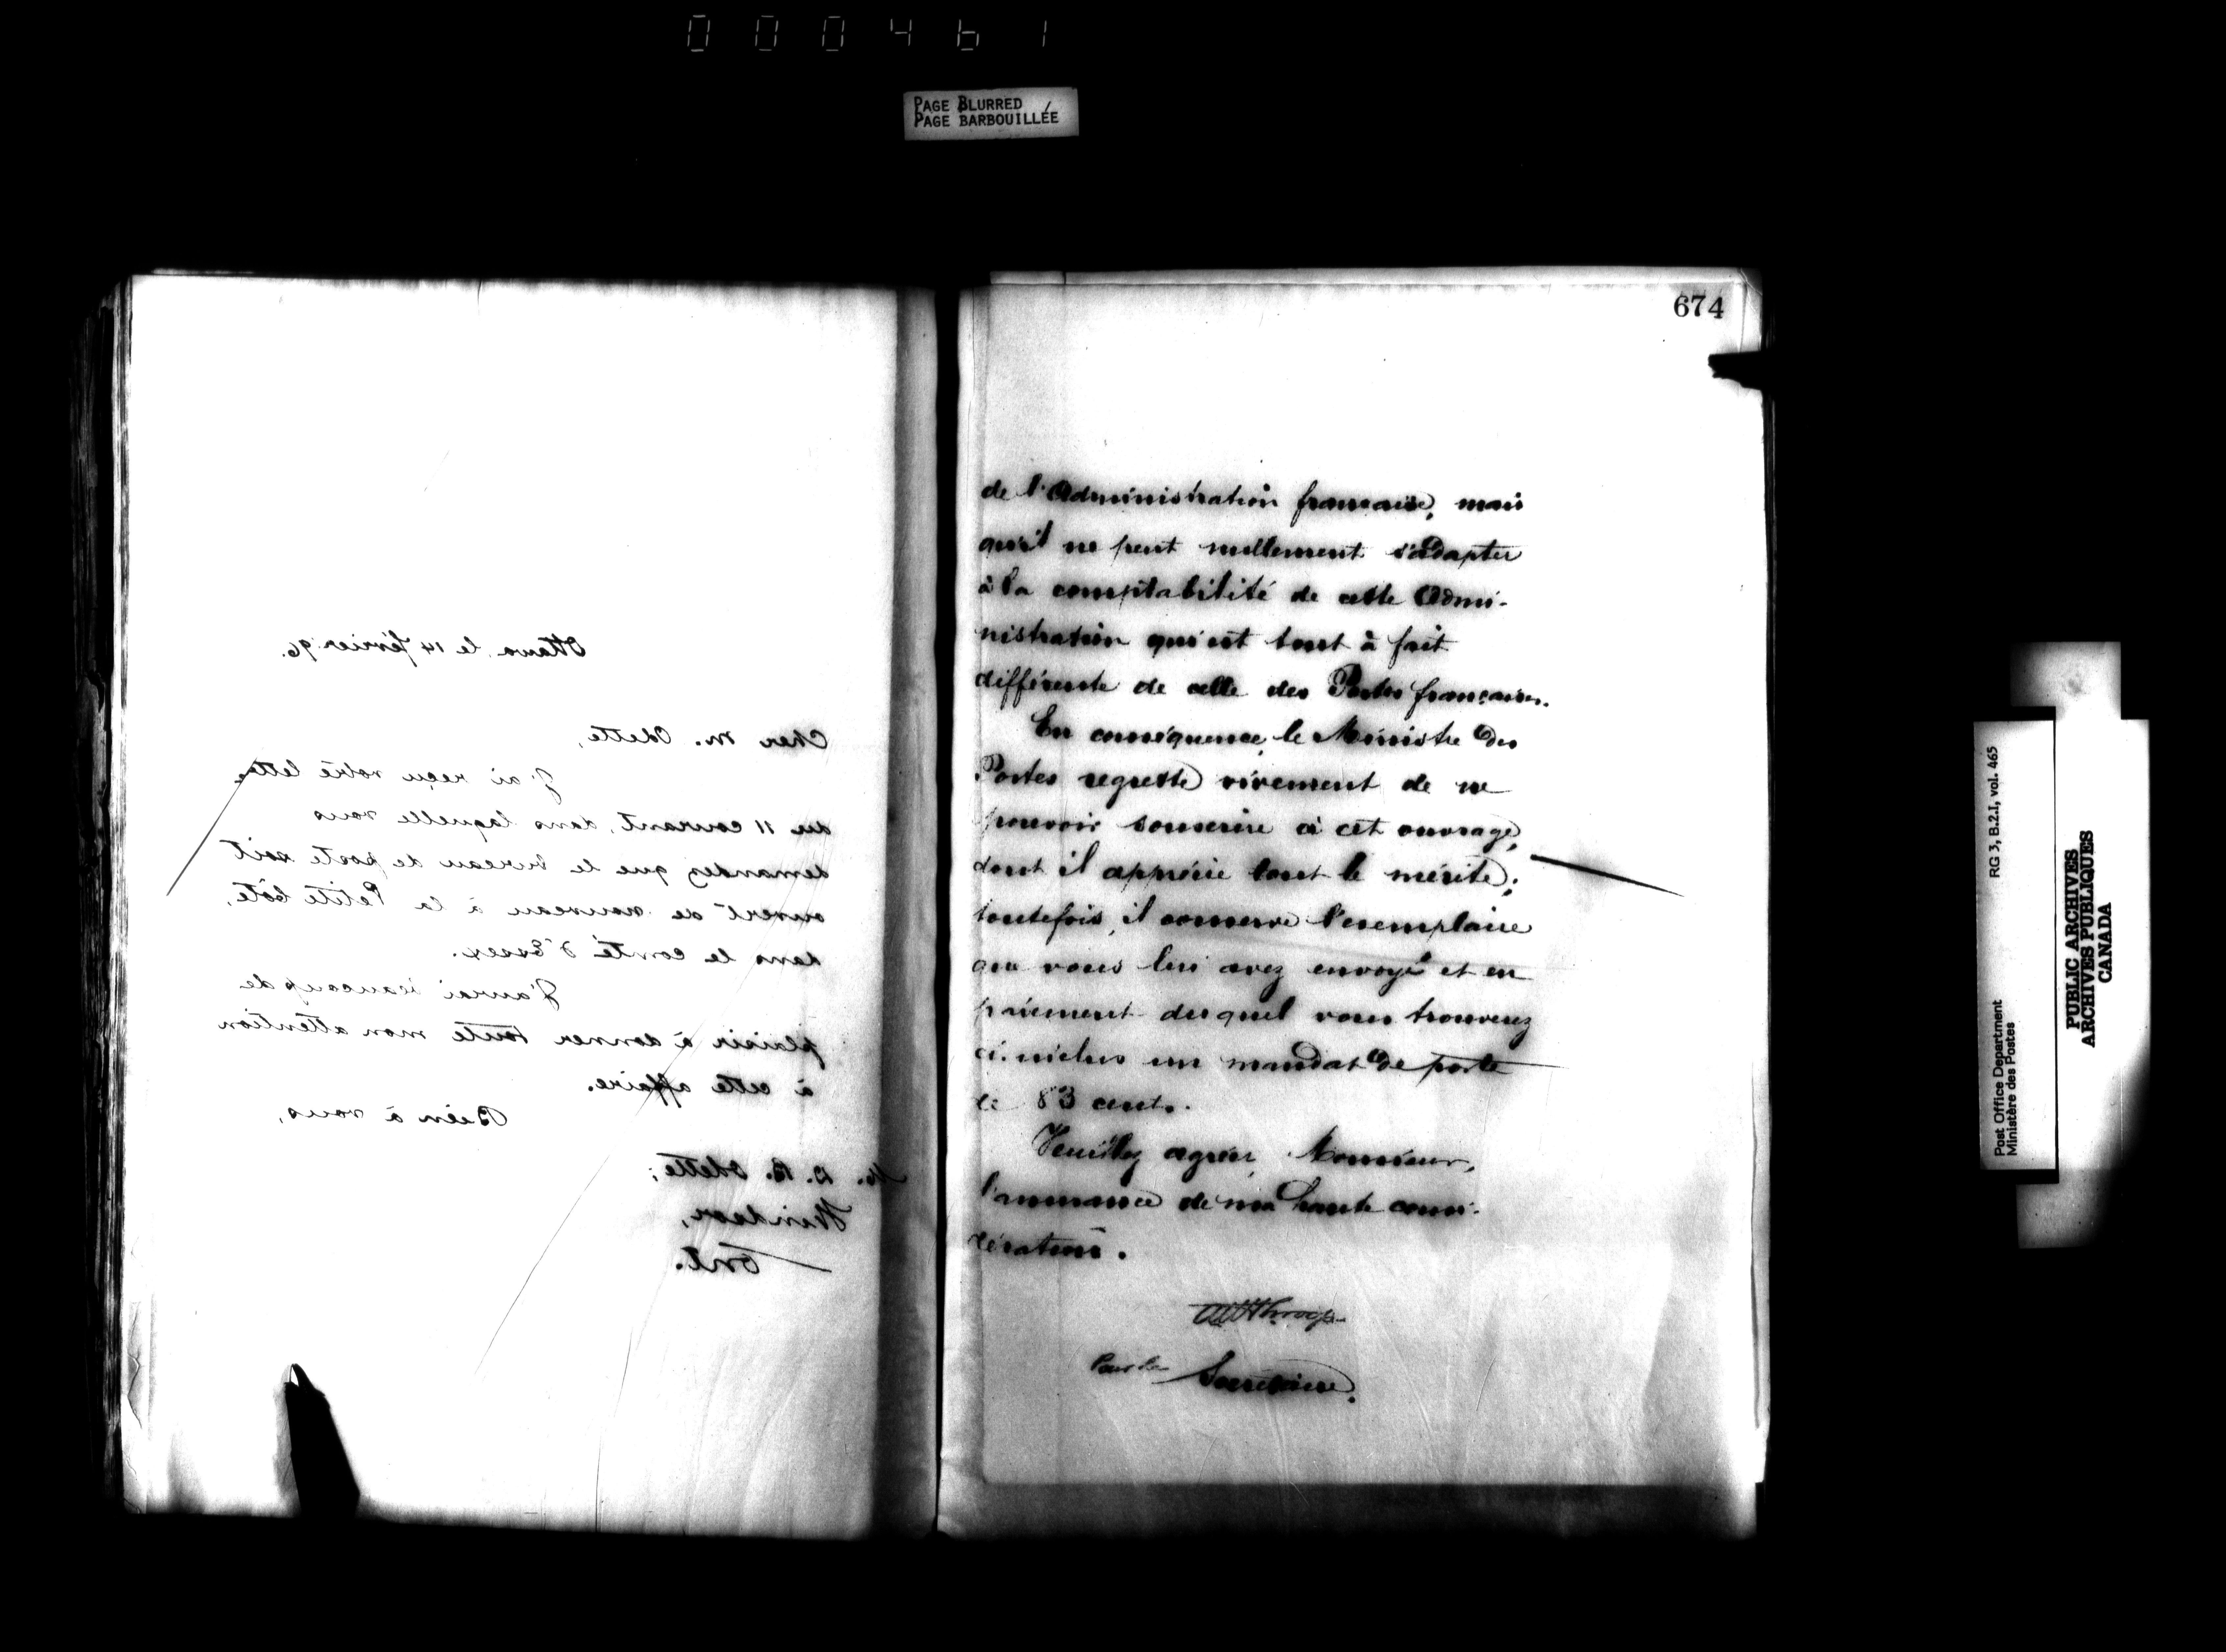 000461
PAGE BLURRED
PAGE BARBOUILLÉE
Ottawa, le 14 février 96.
Cher M. Odette,
J'ai reçu votre lettre
du 11 courant, dans laquelle vous
demandez que le bureau de poste soit
ouvert de nouveau à la Petite Côte,
dans le comté d'Essex.
J'aurai beaucoup de
plaisir à donner toute mon attention
à cette affaire.
Bien à vous,
M. D. B. Odette;
Windsor,
Ont.
674
de l'Administration française, mais
qu'il ne peut nullement s'adapter
à la comptabilité de cette Admi-
nistration qui est tout à fait
différente de celle des Postes françaises.
En conséquence, le Ministre des
Postes regrette vivement de ne
pouvoir souscrire à cet ouvrage,
dont il apprécie tout le mérite;
toutefois, il conserve l'exemplaire
que vous lui avez envoyé et en
paiement duquel vous trouverez
ci-inclus un mandat de poste
de 83 cents.
Veuillez agréer, Monsieur,
l'assurance de ma haute consi-
dération.
Pour le Secrétaire.
RG 3, B.2.I, vol. 465
Post Office Department
Ministère des Postes
PUBLIC ARCHIVES
ARCHIVES PUBLIQUES
CANADA